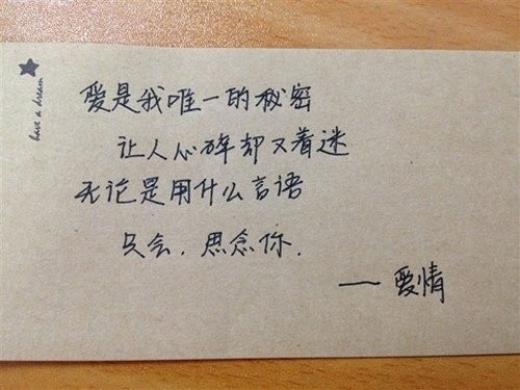 have a dream
爱是我唯一的秘密
让人心碎却又着迷
无论是用什么言语
只会，思念你.
—— 爱情